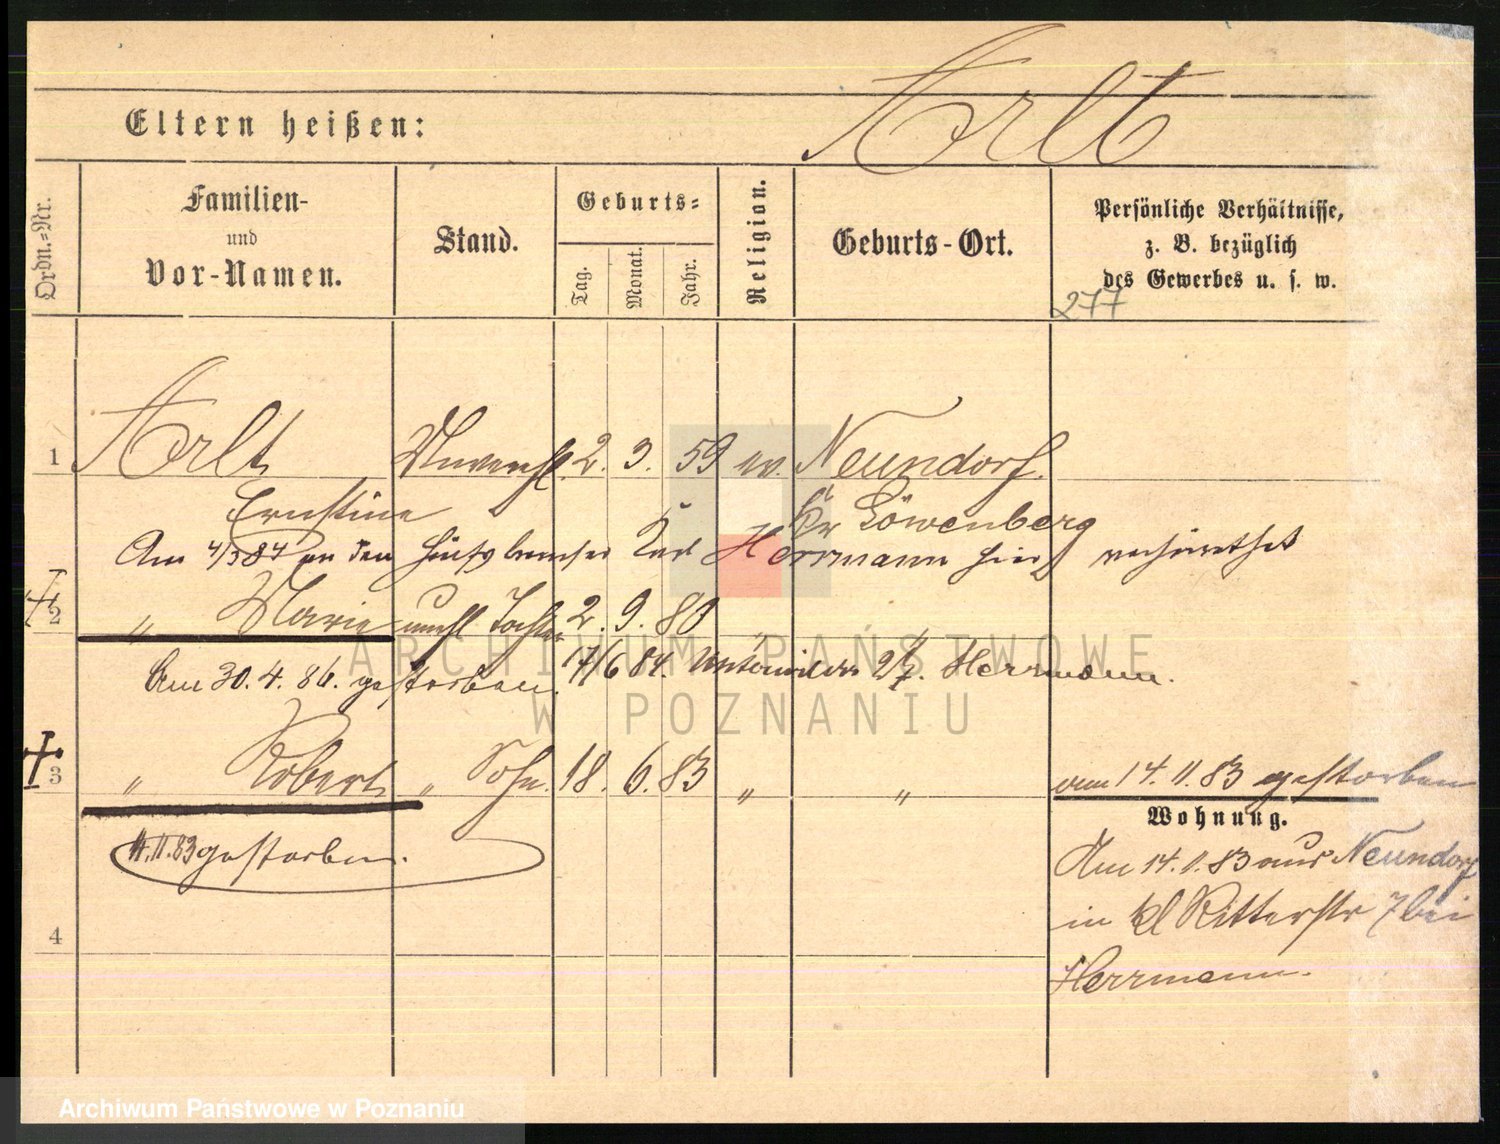 Arlt
Eltern heißen:
Ordn.=Nr.
Familien-
und
Vor-Namen.
Stand.
Geburts=
Tag.
Monat.
Jahr.
Religion.
Geburts-Ort.
Persönliche Verhältnisse,
z. B. bezüglich
des Gewerbes u. s. w.
277
1 Arlt Unverehl. 2. 3. 59 ev. Neundorf.
Ernstine Kr Löwenberg
Am 4/3 84 an den Karl Herrmann hier verheirathet
2 " Marie unehl Tochter 2. 9. 80 " "
Am 30. 4. 86. gestorben. 17/6 84. 27. Herrmann.
3 " Robert " Sohn 18. 6. 83 " " am 14. 11. 83 gestorben
Wohnung.
14. 11. 83 gestorben.
Am 14. 11. 83 aus Neundorf
in kl Ritterstr 7 bei
Herrmann.
4
ARCHIWUM PAŃSTWOWE
W POZNANIU
Archiwum Państwowe w Poznaniu